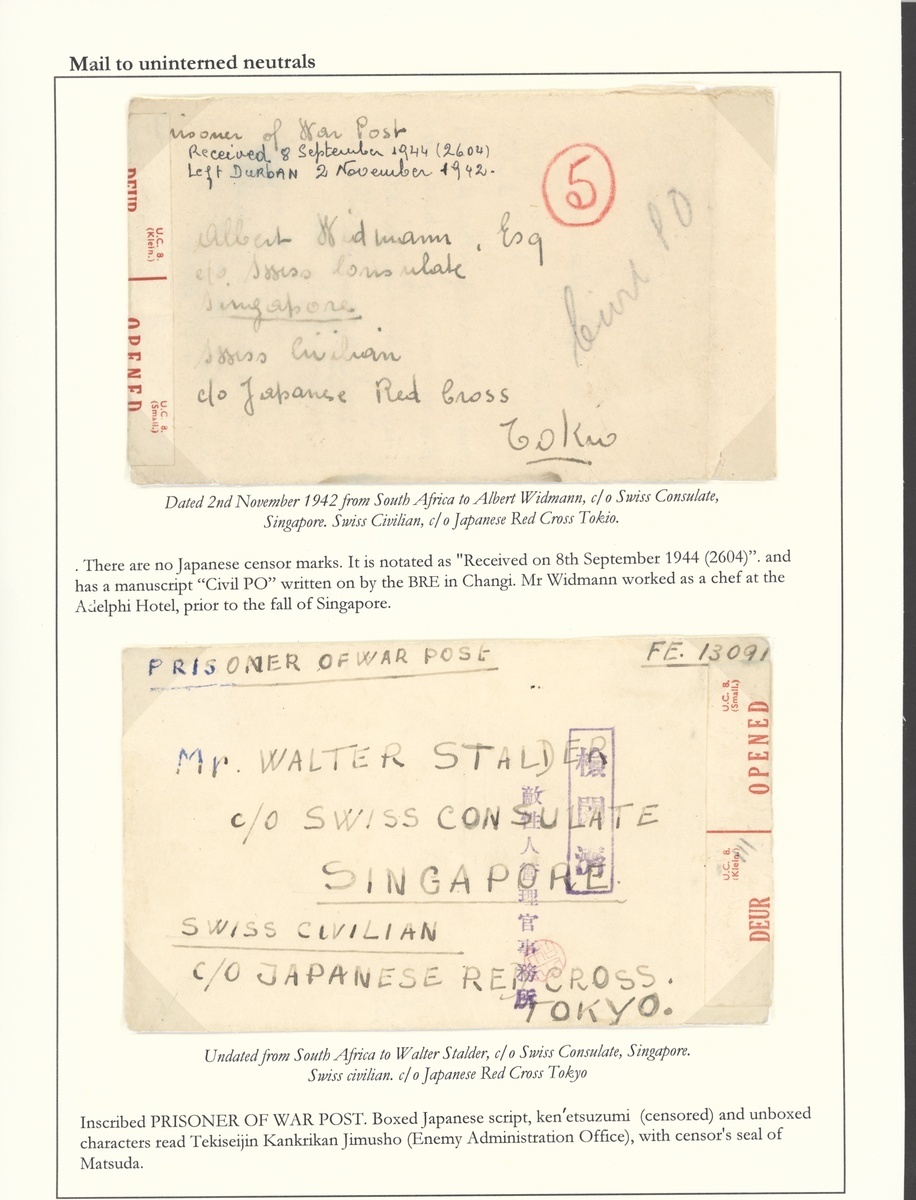 Mail to uninterned neutrals
risoner of War Post
Received 8 September 1944 (2604)
Left DURBAN 2 November 1942.
5
Albert Widmann, Esq
c/o Swiss Consulate
Singapore
Swiss Civilian
c/o Japanese Red Cross
Tokio
Civil P.O
DEUR
U.C. 8.
(Klein.)
OPENED
U.C. 8.
(Small.)
Dated 2nd November 1942 from South Africa to Albert Widmann, c/o Swiss Consulate,
Singapore. Swiss Civilian, c/o Japanese Red Cross Tokio.
. There are no Japanese censor marks. It is notated as "Received on 8th September 1944 (2604)”. and
has a manuscript “Civil PO” written on by the BRE in Changi. Mr Widmann worked as a chef at the
Adelphi Hotel, prior to the fall of Singapore.
PRISONER OF WAR POST
FE. 13091
Mr. WALTER STALDER
c/o SWISS CONSULATE
SINGAPORE.
SWISS CIVILIAN
C/O JAPANESE RED CROSS.
TOKYO.
検閲済
敵性人管理官事務所
U.C. 8.
(Small.)
OPENED
U.C. 8.
(Klein.)
DEUR
Undated from South Africa to Walter Stalder, c/o Swiss Consulate, Singapore.
Swiss civilian. c/o Japanese Red Cross Tokyo
Inscribed PRISONER OF WAR POST. Boxed Japanese script, ken'etsuzumi (censored) and unboxed
characters read Tekiseijin Kankrikan Jimusho (Enemy Administration Office), with censor's seal of
Matsuda.